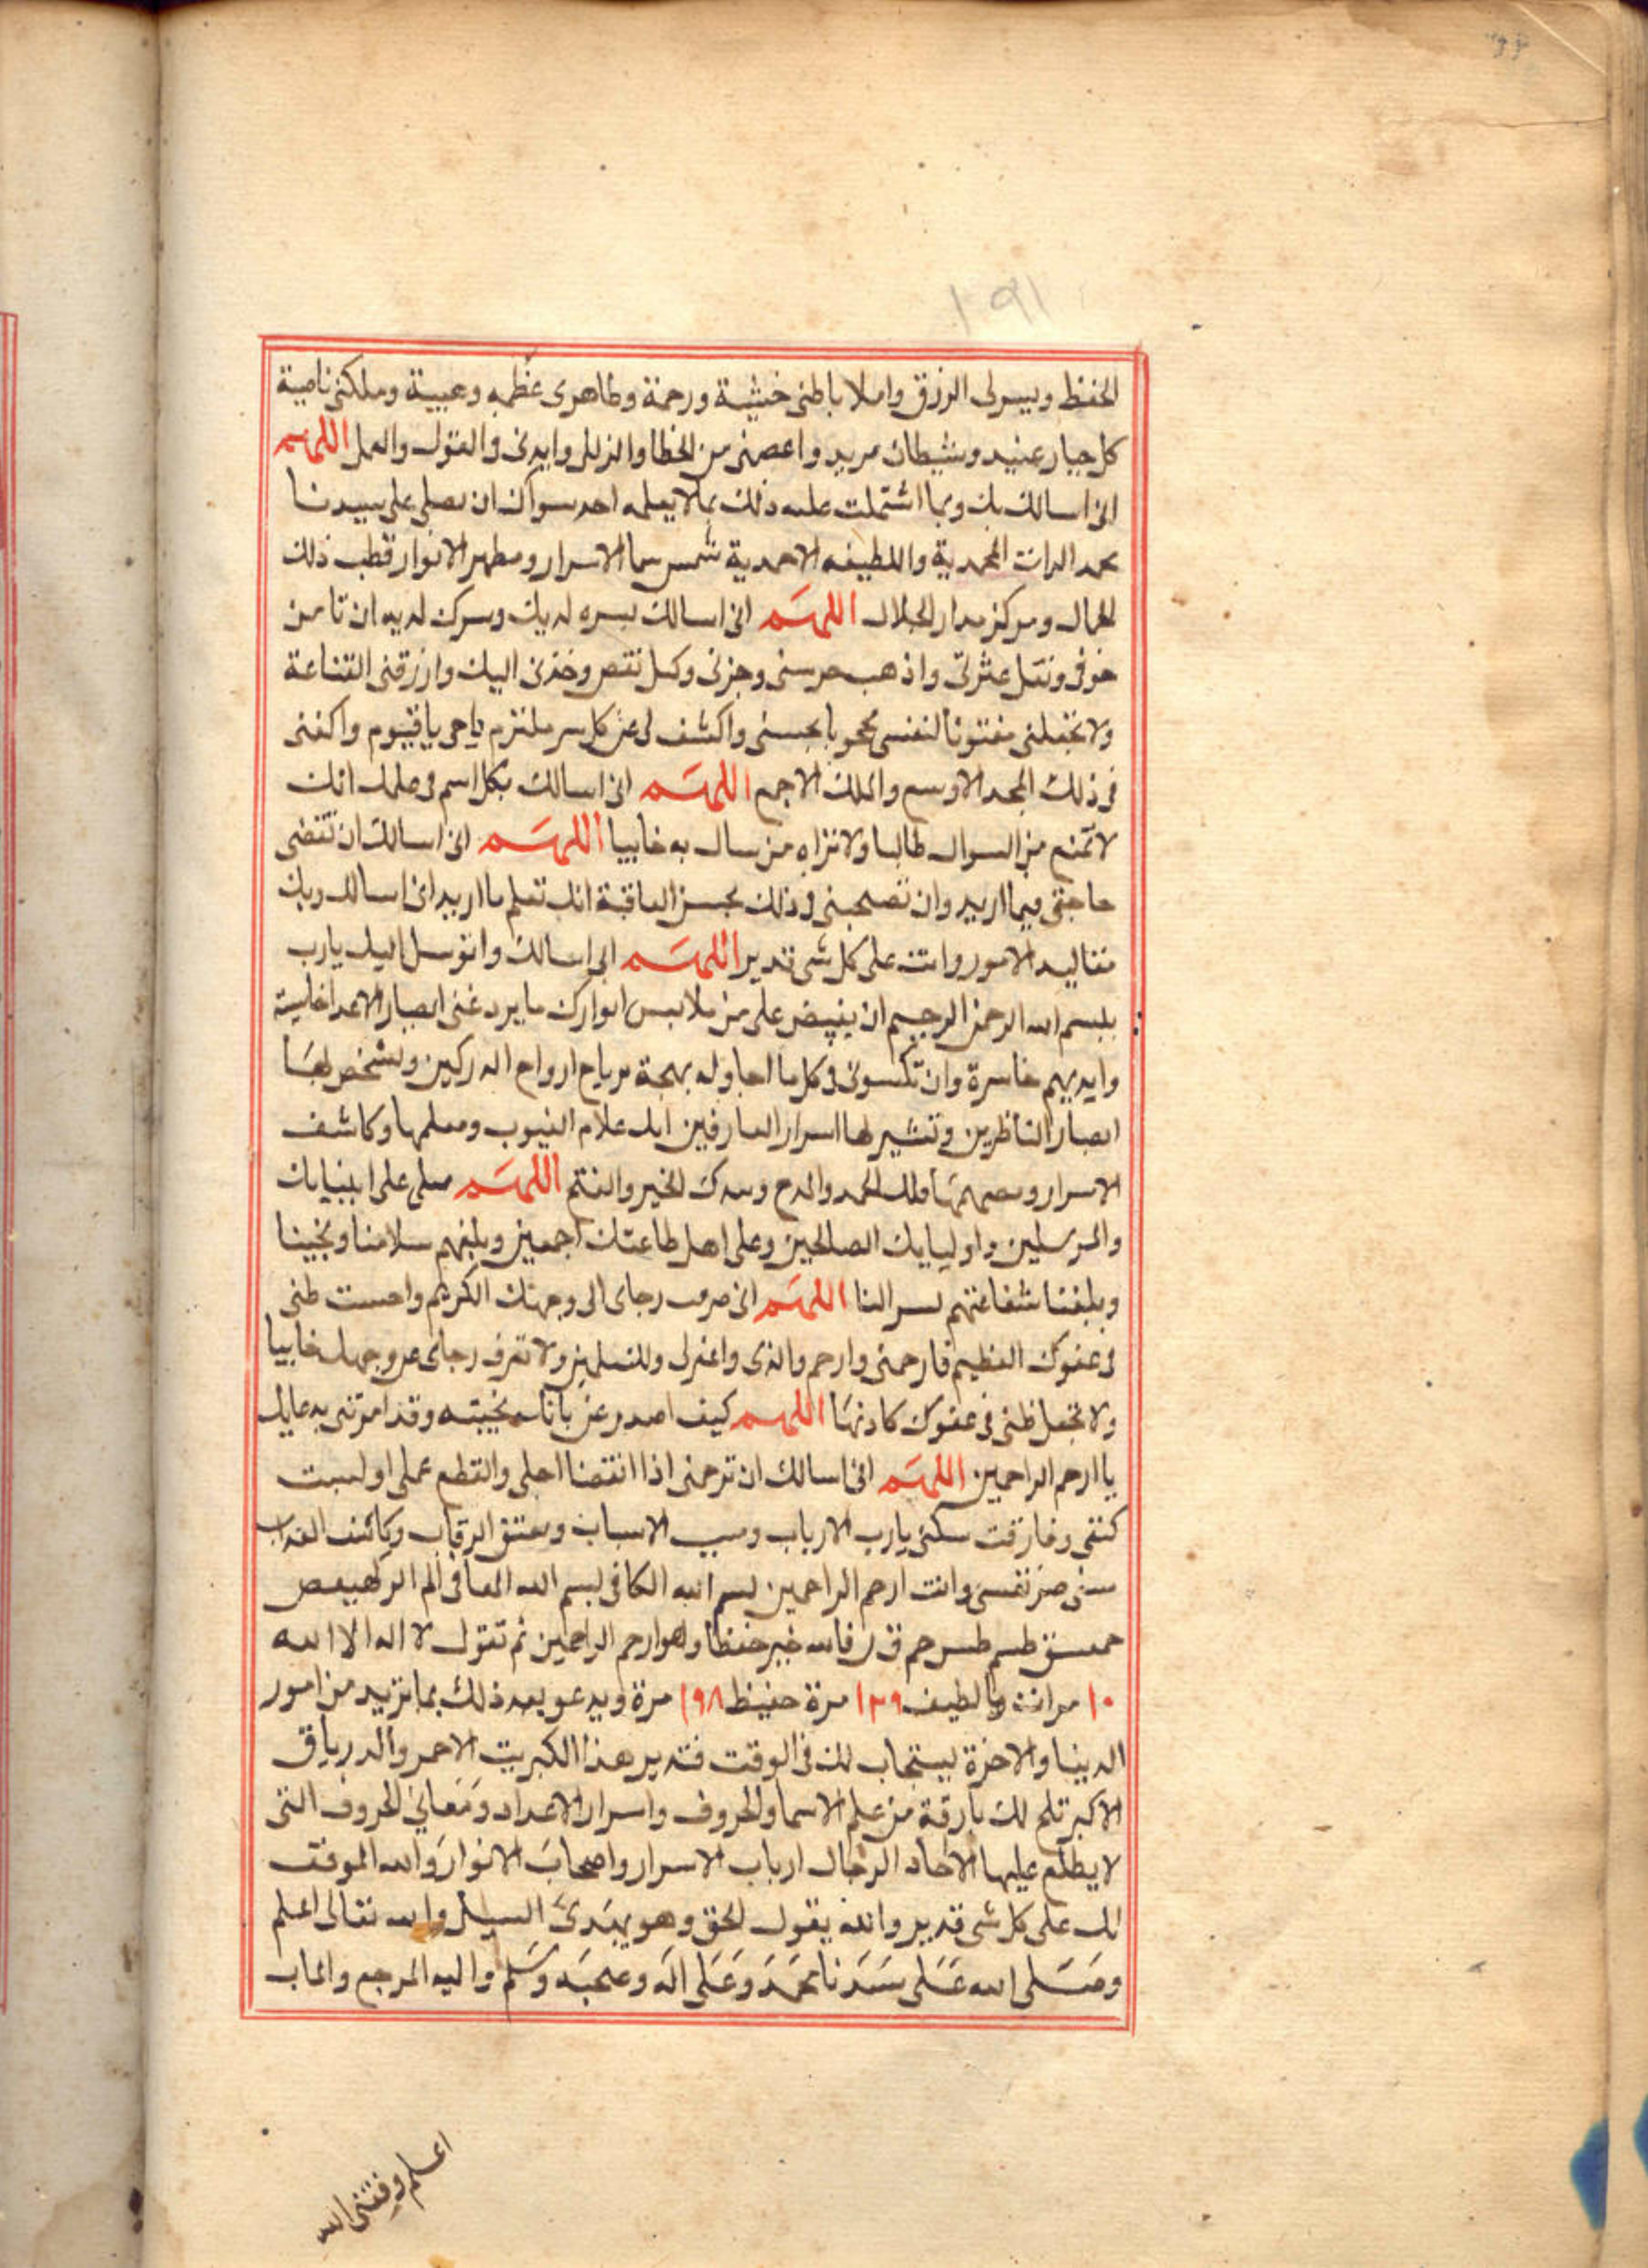 ١٩١
الحفظ ويسر لى الرزق واملا باطنى خشية ورحمة وظاهرى عظمه وهيبة وملكنى ناصية
كل جبار عنيد وشيطان مريد واعصمنى من الخطا والزلل وايدنى فى القول والعمل اللهم
انى اسالك بك وبما اشتملت عليه ذلك بما لا يعلمه احد سواك ان تصلى على سيدنا
محمد الذات المحمدية واللطيفه الاحمدية شمس سما الاسرار ومظهر الانوار قطب ذلك
الجمال ومركز مدار الجلال اللهم انى اسالك بسره لديك وسرك لديه ان تامن
خوفى وتقل عثرتى واذهب حرسنى وحزنى وكل نقص وخذنى اليك وارزقنى القناعة
ولا تجعلنى مفتونا لنفسى محجوبا بحسنى واكشف لى عن كل سر ملتزم يا حى يا قيوم واكفنى
فى ذلك المجد الاوسع والملك الاجمع اللهم انى اسالك بكل اسم فى علمك انك
لا تمنع من السوال طالبا ولا تراه من سال به خايبا اللهم انى اسالك ان تقضى
حاجتى فيما اريد وان تصحبنى فى ذلك بحسن العاقبة انك تعلم ما اريد انى اسالك وبك
مقاليد الامور وانت على كل شى قدير اللهم انى اسالك واتوسل اليك يارب
ببسم الله الرحمن الرحيم ان يفيض على من ملابس انوارك ما يرد عنى ابصار الاعدا خاسية
وايديهم خاسرة وان تكسونى فى كل ما احاوله بهجة ارواح الدركين وتشخص لها
ابصار الناظرين وتشير لها اسرار العارفين انك علام الغيوب ومعلمها وكاشف
الاسرار فلك الحمد والمدح وبيدك الخير اللهم صلى على انبيايك
والمرسلين واوليايك الصالحين وعلى اهل طاعتك اجمعين وبلغهم سلامنا ونجينا
وبلغنا شفاعتهم اللهم انى صرفت رجاى الى وجهك الكريم واحسنت ظنى
فى عفوك العظيم فارحمنى وارحم والدى واغفر لى وللمسلمين ولا رجاى عن وجهك خايبا
ولا تجعل ظنى فى عفوك كاذبا اللهم كيف اصدر عن بابك بخيبته وقد امرتنى بدعايك
يا ارحم الراحمين اللهم انى اسالك ان ترحمنى اذا انقضا اجلى وانقطع عملى اولبست
كفنى وفارقت سكنى يارب الارباب وسبب الاسباب ومعتق الرقاب وكاشف العذاب
مسنى ضر نفسى وانت ارحم الراحمين بسم الله الكافى بسم الله المعافى الم الر كهيعص
حمعسق طسم طس حم ق ن فالله خير حفظا وهو ارحم الراحمين ثم تقول لا اله الا الله
١٠ مرات يا لطيف ١٢٩ مرة حفيظ ٩٩٨ مرة ويدعو بعد ذلك بما تريد من امور
الدينا والاخرة يستجاب لك فى الوقت فتدبر هذا الكبريت الاحمر والدرياق
الاكبر تلح لك بارقة من علم الاسما والحروف واسرار الاعداد ومعانى الحروف التى
لا يطلع عليها الا احاد الرجال ارباب الاسرار واصحاب الانوار والله الموفق
انك على كل شى قدير والله يقول الحق وهو يهدى السبيل والله تعالى اعلم
وصلى الله على سيدنا محمد وعلى اله وصحبه وسلم واليه المرجع والماب
اعلم وفقنى الله